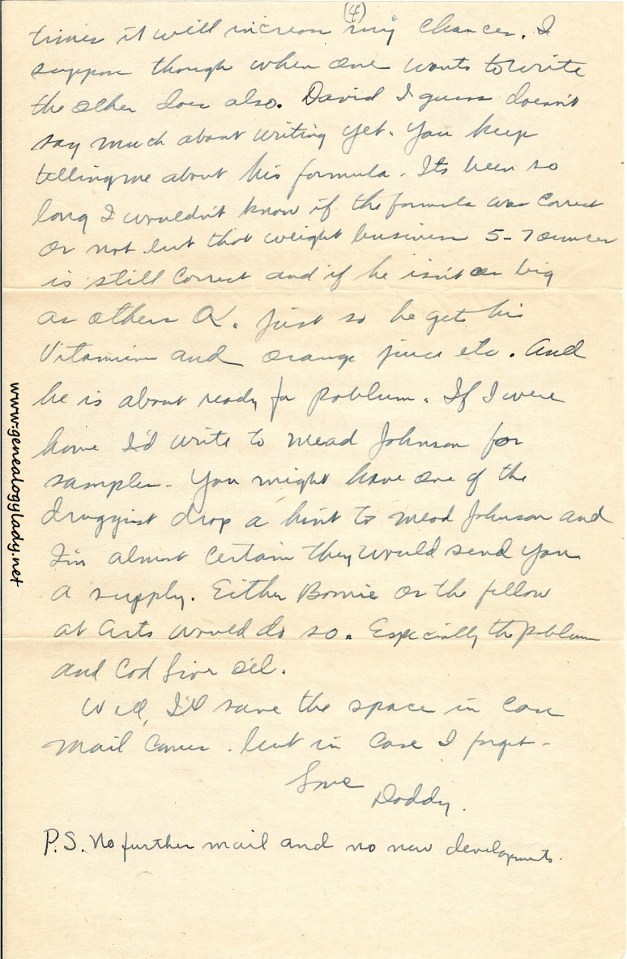 (4)
times it will increase my chances. I
suppose though when one wants to write
the other does also. David I guess doesn't
say much about writing yet. You keep
telling me about his formula. Its been so
long I wouldn't know if the formula was correct
or not but that weight business 5-7 ounces
is still correct and if he isn't as big
as others O.K. just so he gets his
Vitamins and orange juice etc. And
he is about ready for Pablum. If I were
home I'd write to Mead Johnson for
samples. You might have one of the
druggist drop a hint to Mead Johnson and
I'm almost certain they would send you
a supply. Either Bonnie or the fellow
at Arts would do so. Especially the Pablum
and Cod liver oil.
Well, I'll save the space in case
mail comes. but in case I forget -
Love
Daddy.
P.S. No further mail and no new developments.
www.genealogylady.net